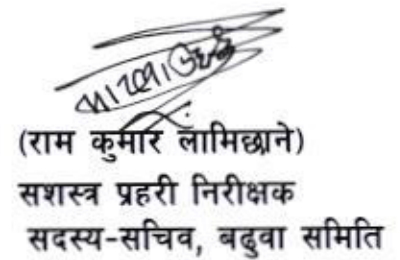 (राम कुमार लामिछाने)
सशस्त्र प्रहरी निरीक्षक
सदस्य-सचिव, बढुवा समिति